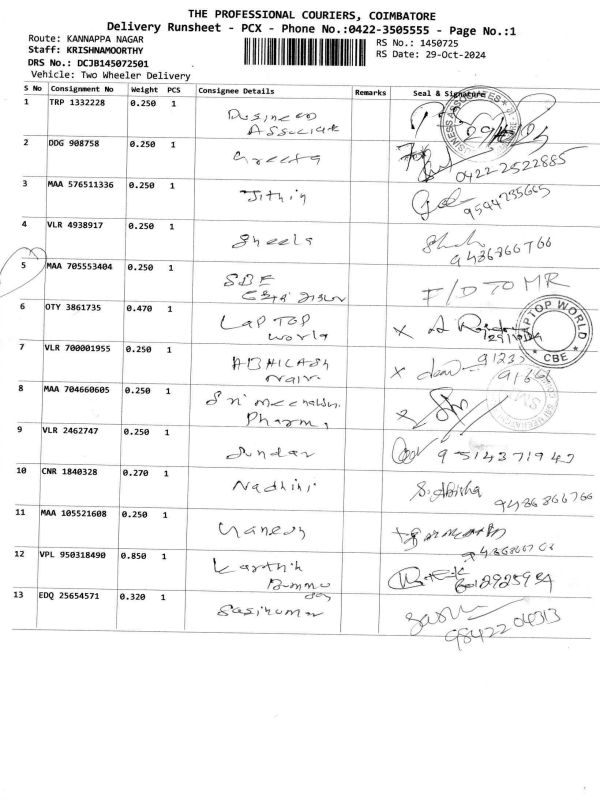 THE PROFESSIONAL COURIERS, COIMBATORE
Delivery Runsheet - PCX - Phone No.:0422-3505555 - Page No.:1
Route: KANNAPPA NAGAR
RS No.: 1450725
Staff: KRISHNAMOORTHY
RS Date: 29-Oct-2024
DRS No.: DCJB145072501
Vehicle: Two Wheeler Delivery
S No Consignment No Weight PCS Consignee Details Remarks Seal & Signature
1 TRP 1332228 0.250 1 Business
Associate
2 DDG 908758 0.250 1 Greeta
0422-2522885
3 MAA 576511336 0.250 1 Jithin
4 VLR 4938917 0.250 1 Sheela
9486866766
5 MAA 705553404 0.250 1 SBE
F/D TO MR
6 OTY 3861735 0.470 1 LAPTOP
World
LAPTOP WORLD
CBE
7 VLR 700001955 0.250 1 ABHILASH
Nair
8 MAA 704660605 0.250 1 Sri Meenakshi
Pharma
9 VLR 2462747 0.250 1 Sundar
9514371947
10 CNR 1840328 0.270 1 Nadhini
S. Abisha
9486866766
11 MAA 105521608 0.250 1 Ganesh
12 VPL 950318490 0.850 1 Karthik
13 EDQ 25654571 0.320 1 Sasikumar
9842204313